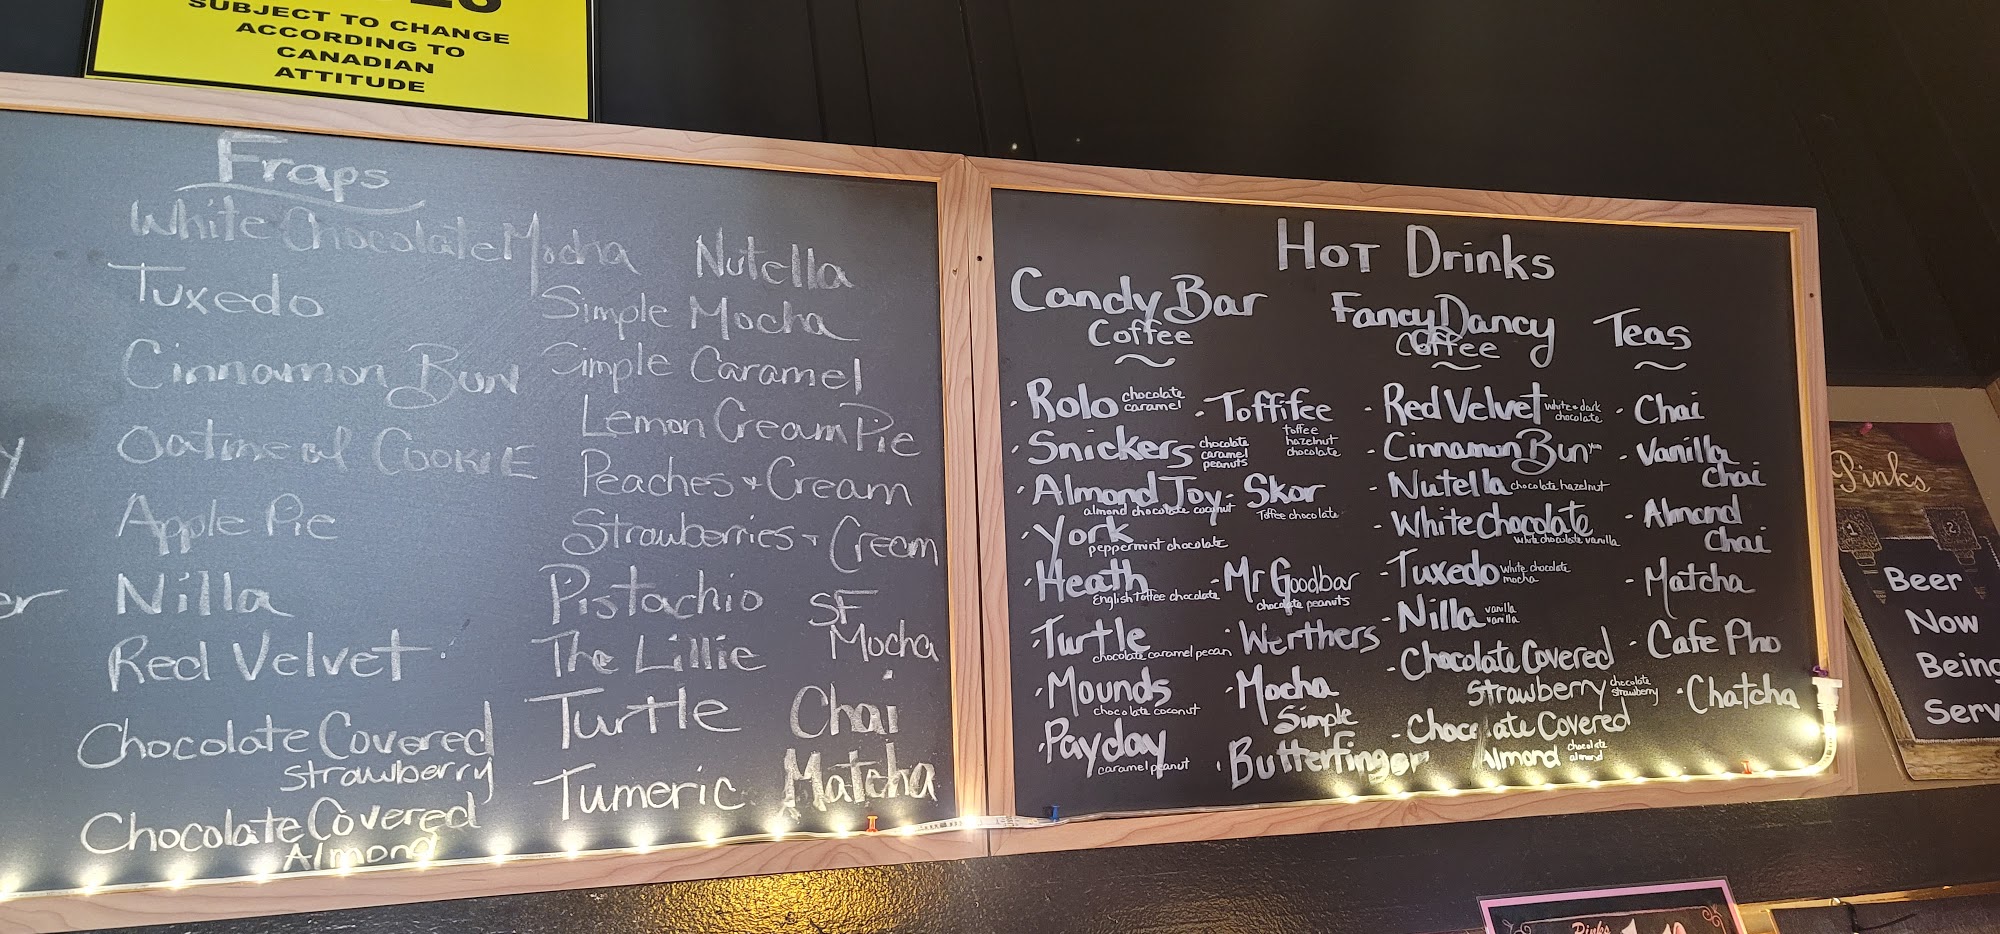 SUBJECT TO CHANGE
ACCORDING TO
CANADIAN
ATTITUDE
Fraps
White Chocolate Mocha
Tuxedo
Cinnamon Bun
Oatmeal Cookie
Apple Pie
Nilla
Red Velvet
Chocolate Covered
Strawberry
Chocolate Covered
Almond
Nutella
Simple Mocha
Simple Caramel
Lemon Cream Pie
Peaches + Cream
Strawberries + Cream
Pistachio
SF
Mocha
The Lillie
Turtle
Chai
Tumeric
Matcha
Hot Drinks
Candy Bar
Coffee
· Rolo chocolate
caramel
· Snickers chocolate
caramel
peanuts
· Almond Joy
almond chocolate coconut
· York
peppermint chocolate
· Heath
English Toffee chocolate
· Turtle
chocolate caramel pecan
· Mounds
chocolate coconut
· Payday
caramel peanut
- Toffifee
toffee
hazelnut
chocolate
- Skor
Toffee chocolate
- Mr Goodbar
chocolate peanuts
- Werthers
· Mocha
Simple
· Butterfinger
Fancy Dancy
Coffee
- Red Velvet white + dark
chocolate
- Cinnamon Bun yum
- Nutella chocolate hazelnut
- White chocolate
white chocolate vanilla
- Tuxedo white chocolate
mocha
- Nilla vanilla
vanilla
- Chocolate Covered
Strawberry chocolate
strawberry
- Chocolate Covered
Almond chocolate
almond
Teas
- Chai
- Vanilla
Chai
- Almond
Chai
- Matcha
- Cafe Pho
· Chatcha
Pinks
1
2
Beer
Now
Being
Serv
Pinks